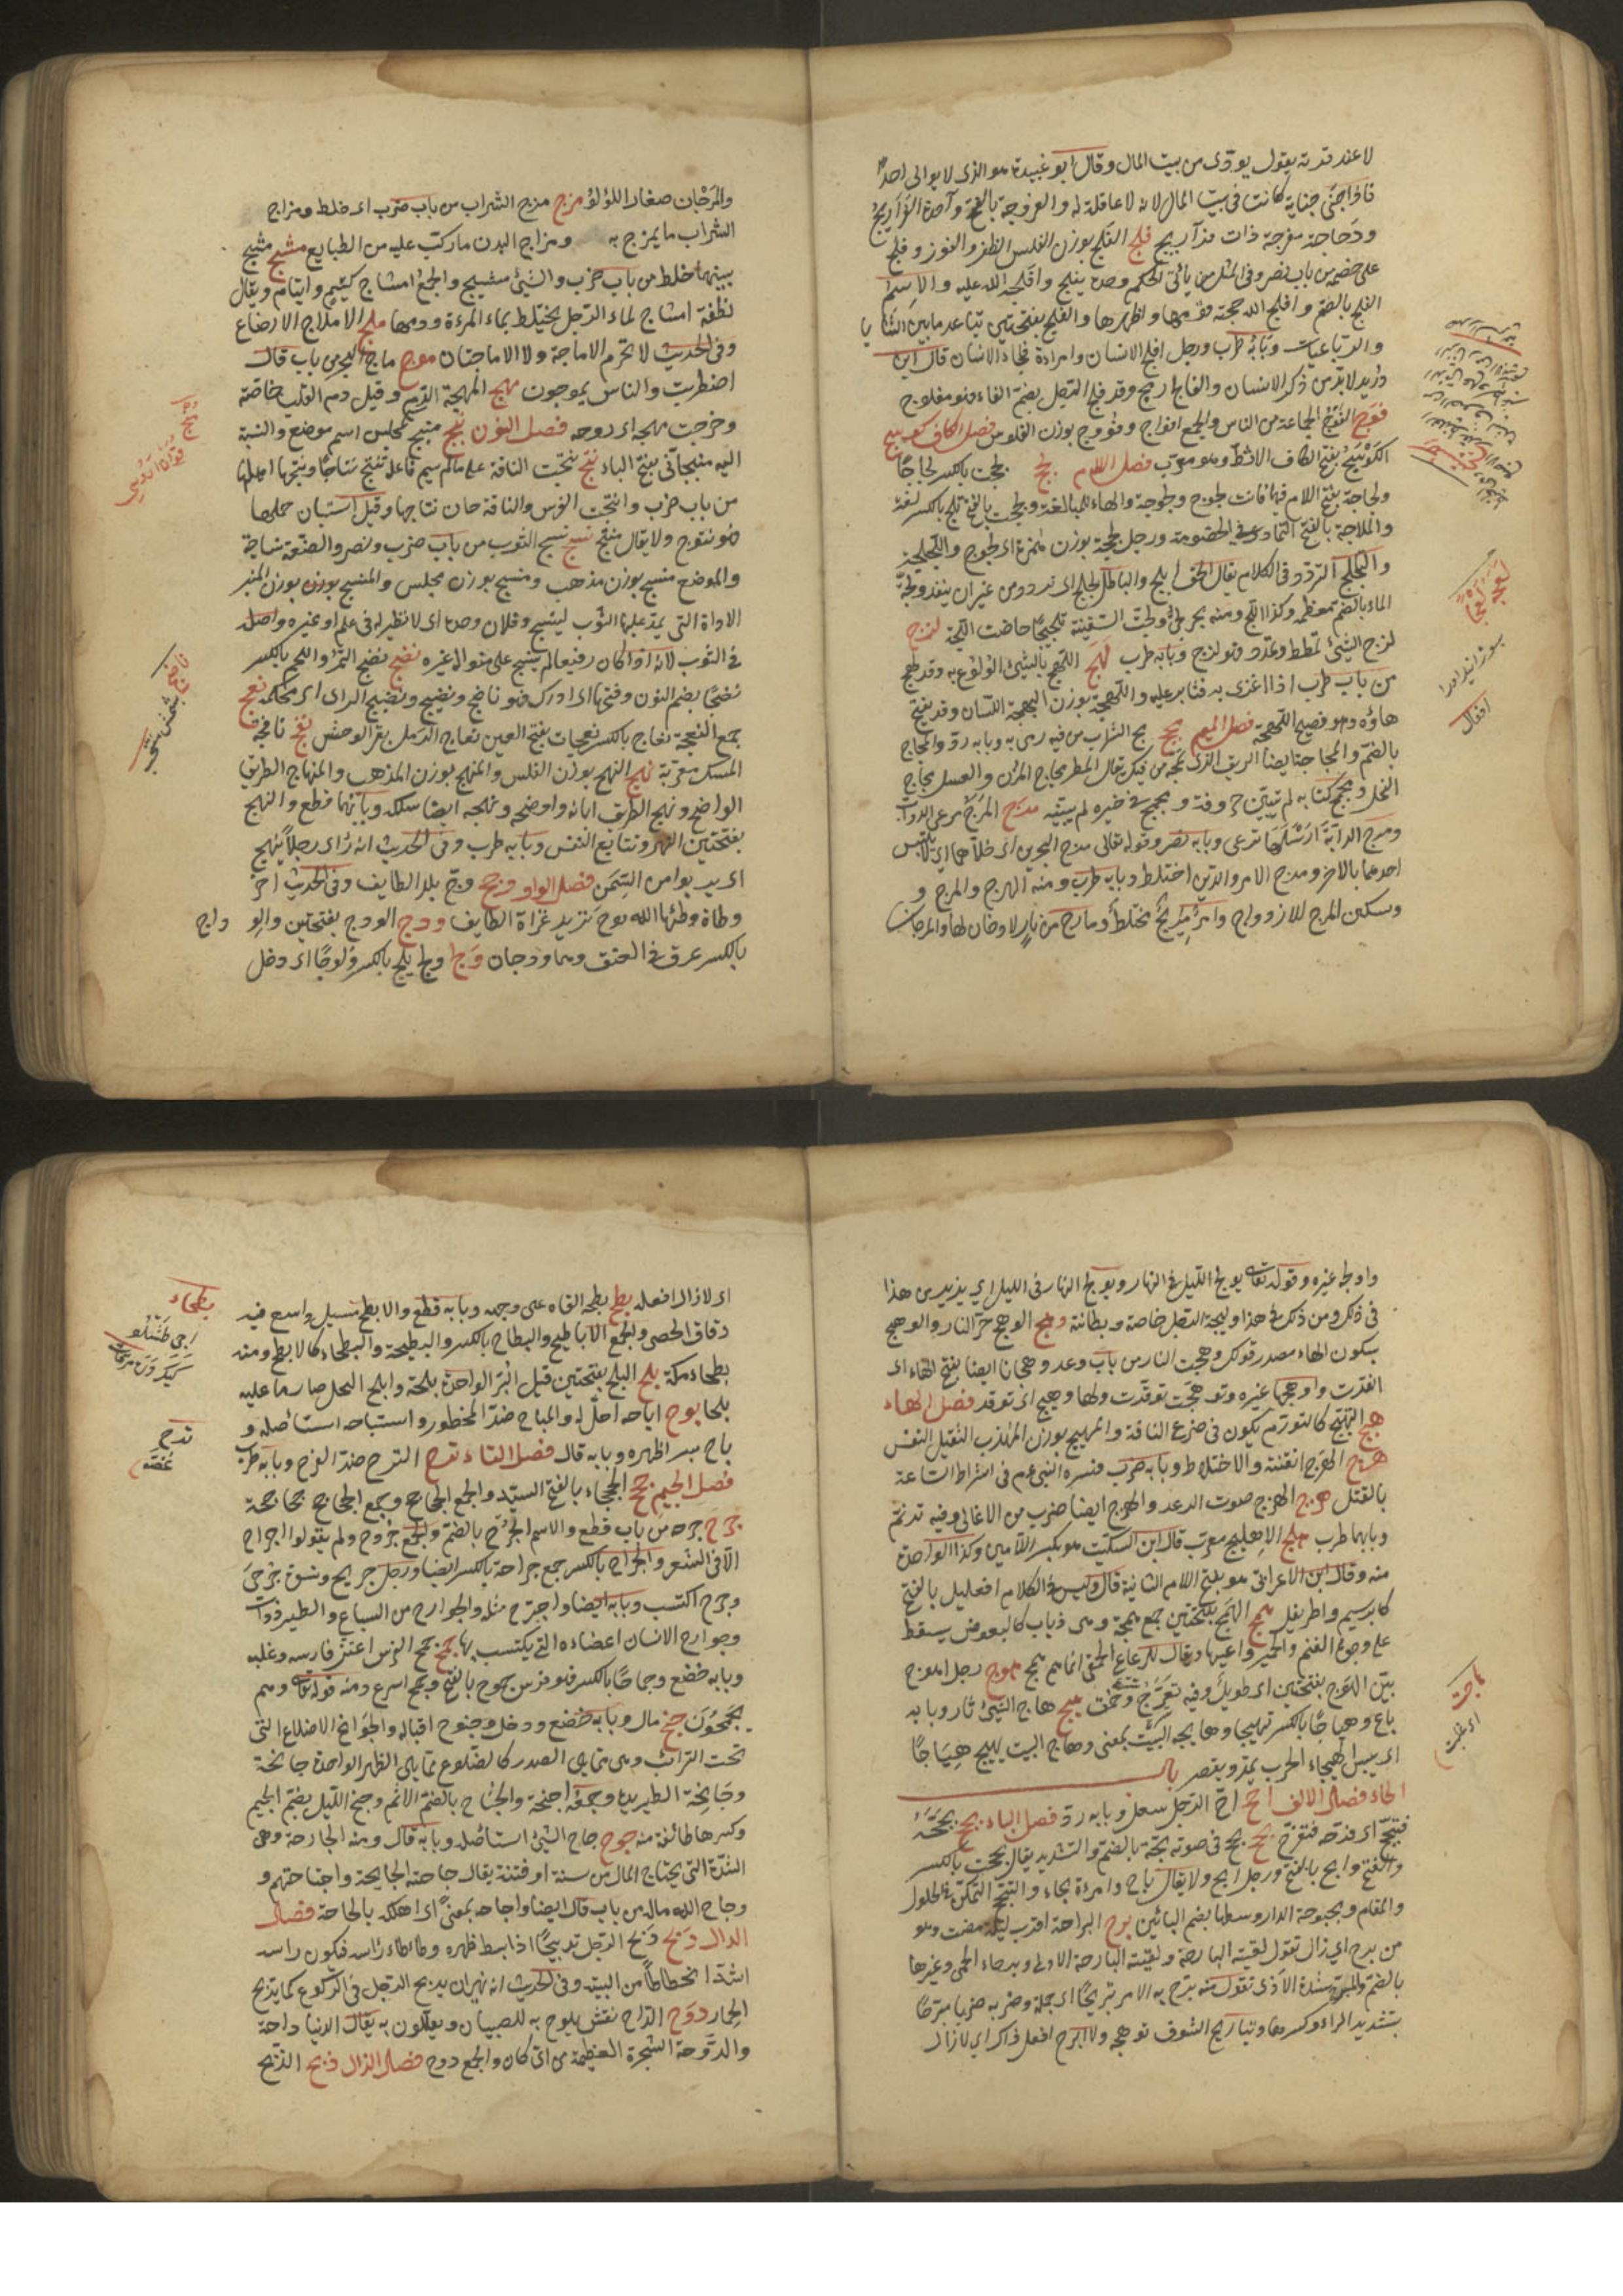 لا عند قرية يقول يودى من بيت المال وقال ابو عبيدة هو الذى لا يوالى احدا
فاذا جنى جناية كانت فى بيت المال لانه لا عاقلة له والفروجة بالفتح واحدة الفراريج
ودجاجة مفرجة ذات فراريج فلج الفلج بوزن الفلس الظفر والفوز وفلج
على خصمه من باب نصر وفى المثل من يأتى الحكم وحده يفلج وافلجه الله عليه والاسم
الفلج بالضم وافلج الله حجته قومها واظهرها والفلج بفتحتين تباعد ما بين الثنايا
والرباعيات وبابه طرب ورجل افلج الاسنان وامراءة فلجاء الاسنان قال ابن
دريد لا بد من ذكر الاسنان والفالج ريح وقد فلج الرجل بضم الفاء فهو مفلوج
فوج الفوج الجماعة من الناس والجمع افواج وفؤوج بوزن الفلوس فصل الكاف كوسج
الكوسج بفتح الكاف الاثط وهو معرب فصل اللام لجج لججت بالكسر لجاجا
ولجاجة بفتح اللام فيهما فانت لجوج ولجوجة والهاء للمبالغة ولججت بالفتح تلج بالكسر لغة
والملاجة بالفتح التمادى فى الخصومة ورجل لججة بوزن همزة اى لجوج والتلجلج
والتلجلج التردد فى الكلام يقال الحق ابلج والباطل لجلج اى تردد من غير ان ينفذ ولجة
الماء بالضم معظمه وكذا اللج ومنه بحر لجى ولججت السفينة تلجيجا خاضت اللجة لزج
لزج الشئ تمطط وتمدد فهو لزج وبابه طرب لهج اللهج بالشئ الولوع به وقد لهج
من باب طرب اذا اغرى به فثابر عليه واللهجة بوزن البهجة اللسان وقد يفتح
هاؤه وهو فصيح اللهجة فصل الميم مجج مج الشراب من فيه رمى به وبابه رد والمجاج
بالضم والمجاجة ايضا الريق الذى تمجه من فيك يقال المطر مجاج المزن والعسل مجاج
النحل ومجمج كتابه لم يبين حروفه ومجمج فى خبره لم يبينه مرج المرج مرعى الدواب
ومرج الدابة ارسلها ترعى وبابه نصر وقوله تعالى مرج البحرين اى خلاهما لا يلتبس
احدهما بالاخر ومرج الامر والدين اختلط وبابه طرب ومنه الهرج والمرج و
وسكن المرج للازدواج وامر مريج مختلط ومارج من نار لا دخان لها والمرجان
لعجه
والمرجان صغار اللؤلؤ مزج مزج الشراب من باب ضرب اى خلط ومزاج
الشراب ما يمزج به ومزاج البدن ما ركب عليه من الطبايع مشج مشج
بينهما خلط من باب ضرب والشئ مشيج والجمع امشاج كيتيم وايتام ويقال
نطفة امشاج لماء الرجل يختلط بماء المرءة ودمها ملج الاملاج الارضاع
وفى الحديث لا تحرم الاملاجة ولا الاملاجتان موج ماج البحر من باب قال
اضطربت والناس يموجون مهج المهجة الدم وقيل دم القلب خاصة
وخرجت مهجه اى روحه فصل النون نبج منبج كمجلس اسم موضع والنسبة
اليه منبجانى بفتح الباء نتج نتجت الناقة على ما لم يسم فاعله تنتج نتاجا ونتجها اهلها
من باب ضرب وانتجت الفرس والناقة حان نتاجها وقيل استبان حملها
فهو نتوج ولا يقال منتج نسج نسج الثوب من باب ضرب ونصر والصنعة نساجة
والموضع منسج بوزن مذهب ومنسج بوزن مجلس والمنسج بوزن بوزن المنبر
الاداة التى يمد عليها الثوب لينسج وفلان وحده اى لا نظير له فى علم او غيره واصله
فى الثوب لانه اذا كان رفيعا لم ينسج على منواله غيره نضج نضج الثمر واللحم بالكسر
نضجا بضم النون وفتحها اى ادرك فهو ناضج ونضيج ونضيج الراى اى محكمه نعج
جمع النعجة نعاج بالكسر نعجات بفتح العين نعاج الرمل بقر الوحش نفج نافجة
المسك معربة نهج النهج بوزن الفلس والمنهج بوزن المذهب والمنهاج الطريق
الواضح ونهج الطريق ابانه واوضحه ونهجه ايضا سلكه وبابهما قطع والنهج
بفتحتين البهر وتتابع النفس وبابه طرب وفى الحديث انه رأى رجلا ينهج
اى يربو من السمن فصل الواو وجج وج بلد الطايف وفى الحديث اخر
وطاة وطئها الله بوج يريد غزاة الطايف ودج الودج بفتحتين والو داج
بالكسر عرق فى العنق وهما ودجان ولج ولج يلج بالكسر ولوجا اى دخل
ناضج
واولجه غيره وقوله تعالى يولج الليل فى النهار ويولج النهار فى الليل اى يزيد من هذا
فى ذلك ومن ذلك فى هذا وليجة الرجل خاصته وبطانته وهج الوهج حر النار والوهج
بسكون الهاء مصدر قولك وهجت النار من باب وعد وهجانا ايضا بفتح الهاء اى
اتقدت واوهجها غيره وتوهجت توقدت ولها وهيج اى توقد فصل الهاء
هبج التهبج كالتورم يكون فى ضرع الناقة والمهبج بوزن المهذب الثقيل النفس
هرج الهرج الفتنة والاختلاط وبابه ضرب وفسره النبى عم فى اشراط الساعة
بالقتل هزج الهزج صوت الرعد والهزج ايضا ضرب من الاغانى وفيه ترنم
وبابهما طرب هلج الاهليلج معرب قال ابن السكيت هو بكسر اللامين وكذا الواحدة
منه وقال ابن الاعرابى هو بفتح اللام الثانية قال وليس فى الكلام افعليل بالفتح
كابريسم واطريفل همج الهمج بفتحتين جمع همجة وهى ذباب كالبعوض يسقط
على وجوه الغنم والحمير واعينها ويقال للرعاع الحمقى انما هم همج هوج رجل اهوج
بين الهوج بفتحتين اى طويل وفيه تعرج وحمق هيج هاج الشئ ثار وبابه
باع وهياجا بالكسر تهييجا وهايجه لبست بمعنى وهاج البيت يهيج هياجا
اى يبس الهيجاء الحرب يمد ويقصر باب
الحاء فصل الالف احح اح الرجل سعل وبابه رد فصل الباء بجح بجحه
فتبجح اى فرحه ففرح بحح بح فى صوته بحة بالضم والتشديد يقال بححت بالكسر
والفتح وابح بالفتح ورجل ابح ولا يقال باح وامرءة بحاء والتبحبح التمكن فى الحلول
والمقام وبحبوحة الدار وسطها بضم البائين برح البارحة اقرب ليلة مضت وهو
من برح اى زال تقول لقيته البارحة ولقيته البارحة الاولى وبرحاء الحمى وغيرها
بالضم والمد شدة الاذى تقول منه برح به الامر تبريحا اى جهده وضربه ضربا مبرحا
بتشديد الراء وكسرها وتباريح الشوق توهجه ولا ابرح افعل ذاك اى لا زال
اى لا ازال افعله بطح بطحه القاه على وجهه وبابه قطع والابطح مسيل واسع فيه
دقاق الحصى والجمع الاباطح والبطاح بالكسر والبطيحة والبطحاء كالابطح ومنه
بطحاء مكة بلح البلح بفتحتين قبل البسر الواحدة بلحة وابلح النخل صار ما عليه
بلحا بوح اباحه احل له والمباح ضد المحظور واستباحه استأصله و
باح بسره اظهره وبابه قال فصل التاء ترح الترح ضد الفرح وبابه طرب
فصل الجيم جحح الجحجاح بالفتح السيد والجمع الجحاجح وجمع الجحاجح جحاجحة
جرح جرحه من باب قطع والاسم الجرح بالضم والجمع جروح ولم يقولوا اجراح
الا فى الشعر والجراح بالكسر جمع جراحة بالكسر ايضا ورجل جريح ونسوة جرحى
وجرح اكتسب وبابه ايضا واجترح مثله والجوارح من السباع والطير ذوات
وجوارح الانسان اعضاءه التى يكتسب بها جمح جمح الفرس اعتز فارسه وغلبه
وبابه خضع وجماحا بالكسر فهو فرس جموح بالفتح وجمح اسرع ومنه قوله تعالى وهم
يجمحون جنح مال وبابه خضع ودخل وجنوح اقباله والجوانح الاضلاع التى
تحت الترائب وهى مما يلى الصدر كالضلوع مما يلى الظهر الواحدة جانحة
وجانحة الطير يداه وجمعه اجنحة والجناح بالضم الاثم وجنح الليل بضم الجيم
وكسرها طائفة منه جوح جاح الشئ استأصله وبابه قال ومنه الجارحة وهى
الشدة التى يجتاح المال من سنة او فتنة يقال جاحتهم الجايحة واجتاحتهم و
وجاح الله ماله من باب قال ايضا واجاحه بمعنى اى اهلكه بالجاحة فصل
الدال دبح دبح الرجل تدبيحا اذا بسط ظهره وطاطاء رأسه فيكون راسه
اشد انحطاطا من اليتيه وفى الحديث انه نهى ان يدبح الرجل فى الركوع كما يدبح
الحمار دوح الداح نقش يلوح به للصبيان ويعللون به يقال الدنيا داحة
والدوحة الشجرة العظيمة من اى كان والجمع دوح فصل الذال ذبح الذبح
بطحاء
ترح